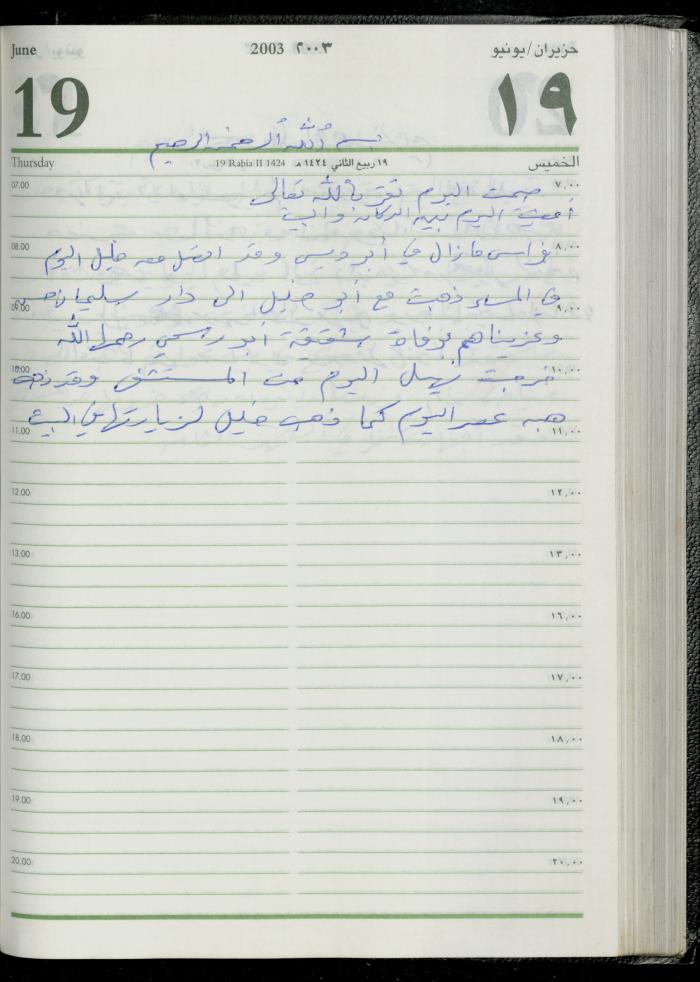 June 2003 ٢٠٠٣ حزيران/يونيو
19 ١٩
بسم الله الرحمن الرحيم
Thursday 19 Rabia II 1424 ١٩ ربيع الثاني ١٤٢٤ هـ الخميس
07.00 صمت اليوم تقربا لله تعالى ٧,٠٠
أمضيت اليوم بين الدكان والبيت
08.00 نواس مازال في أبو ديس وقد اتصل معه خليل اليوم ٨,٠٠
في المساء ذهبت مع أبو خليل الى دار سليمان
09.00 ٩,٠٠
وعزيناهم بوفاة شقيقة أبو رسمي رحمها الله
10.00 خرجت اليوم من المستشفى وقد ذهبت ١٠,٠٠
هبه عصر اليوم كما ذهب خليل لزيارتها في البيت
11.00 ١١,٠٠
12.00 ١٢,٠٠
13.00 ١٣,٠٠
16.00 ١٦,٠٠
17.00 ١٧,٠٠
18.00 ١٨,٠٠
19.00 ١٩,٠٠
20.00 ٢٠,٠٠